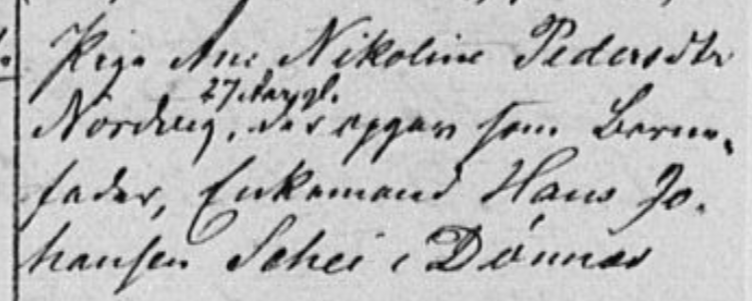 Pige Ane Nikoline Pedersdtr
27 Aar gl.
Nordvig, der opgav som Barne-
fader, Enkemand Hans Jo-
hansen Schei i Dønnes